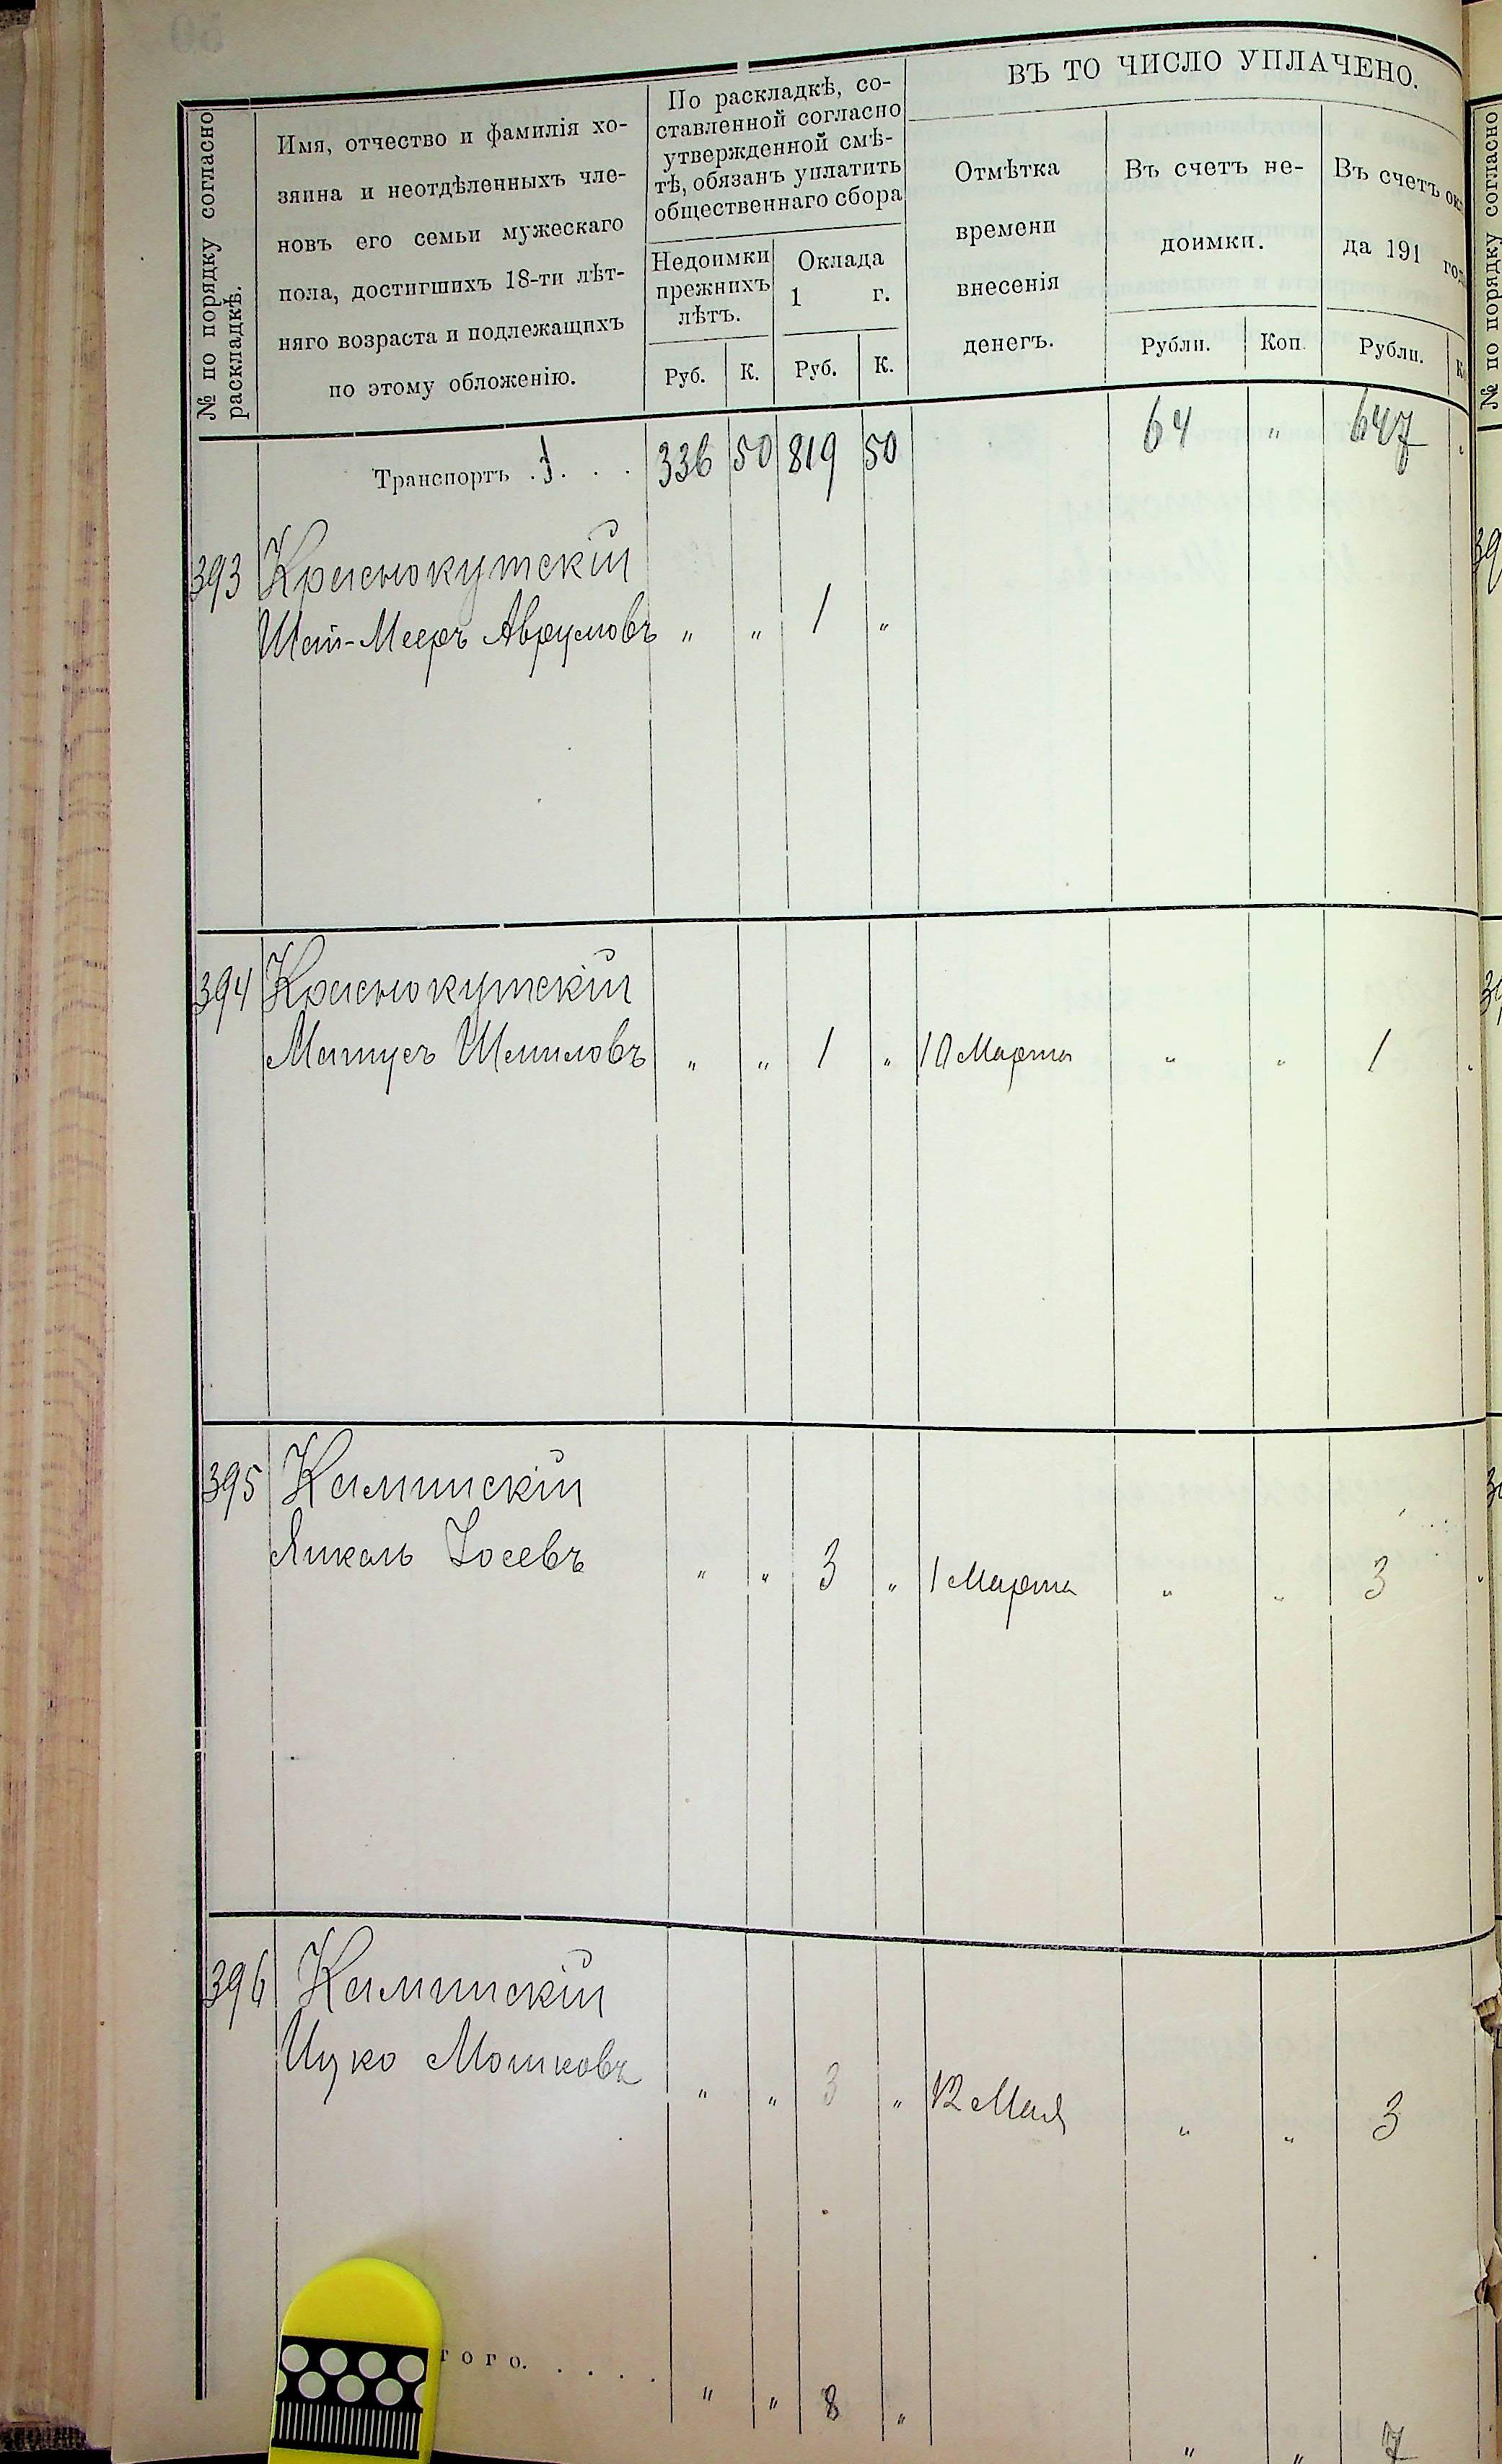 ВЪ ТО ЧИСЛО УПЛАЧЕНО.
№ по порядку согласно
раскладкѣ.
Имя, отчество и фамилія хо-
зяина и неотдѣленныхъ чле-
новъ его семьи мужескаго
пола, достигшихъ 18-ти лѣт-
няго возраста и подлежащихъ
по этому обложенію.
По раскладкѣ, со-
ставленной согласно
утвержденной смѣ-
тѣ, обязанъ уплатить
общественнаго сбора
Недоимки
прежнихъ
лѣтъ.
Руб. К.
Оклада
1 г.
Руб. К.
Отмѣтка
времени
внесенія
денегъ.
Въ счетъ не-
доимки.
Рубли. Коп.
Въ счетъ ок
да 191 год
Рубли. К
Транспортъ . . . 336 50 819 50 64 " 647
393 Краснокутскій
Шай-Мееръ Аврумовъ " " 1 "
394 Краснокутскій
Матусъ Шмиловъ " " 1 " 10 Марта " " 1
395 Каминскій
Янкель Іосевъ " " 3 " 1 Марта " " 3
396 Каминскій
Ицко Мошковъ " " 3 " 12 Мая " " 3
того. . . . . " " 8 " " " 7
№ по порядку согласно